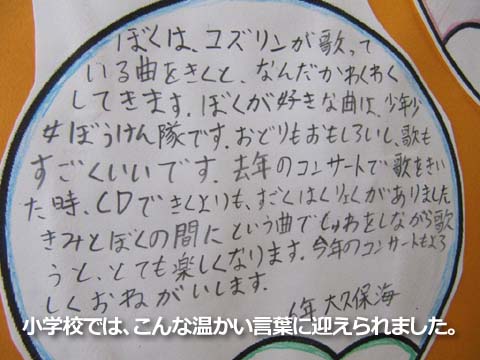 ぼくは、コズリンが歌って
いる曲をきくと、なんだかわくわく
してきます。ぼくが好きな曲は、少年少
女ぼうけん隊です。おどりもおもしろいし、歌も
すごくいいです。去年のコンサートで歌をきい
た時、CDできくよりも、すごくはくりょくがありました
きみとぼくの間にという曲でしゅわをしながら歌
うと、とても楽しくなります。今年のコンサートもよろ
しくおねがいします。
年 大久保海
小学校では、こんな温かい言葉に迎えられました。